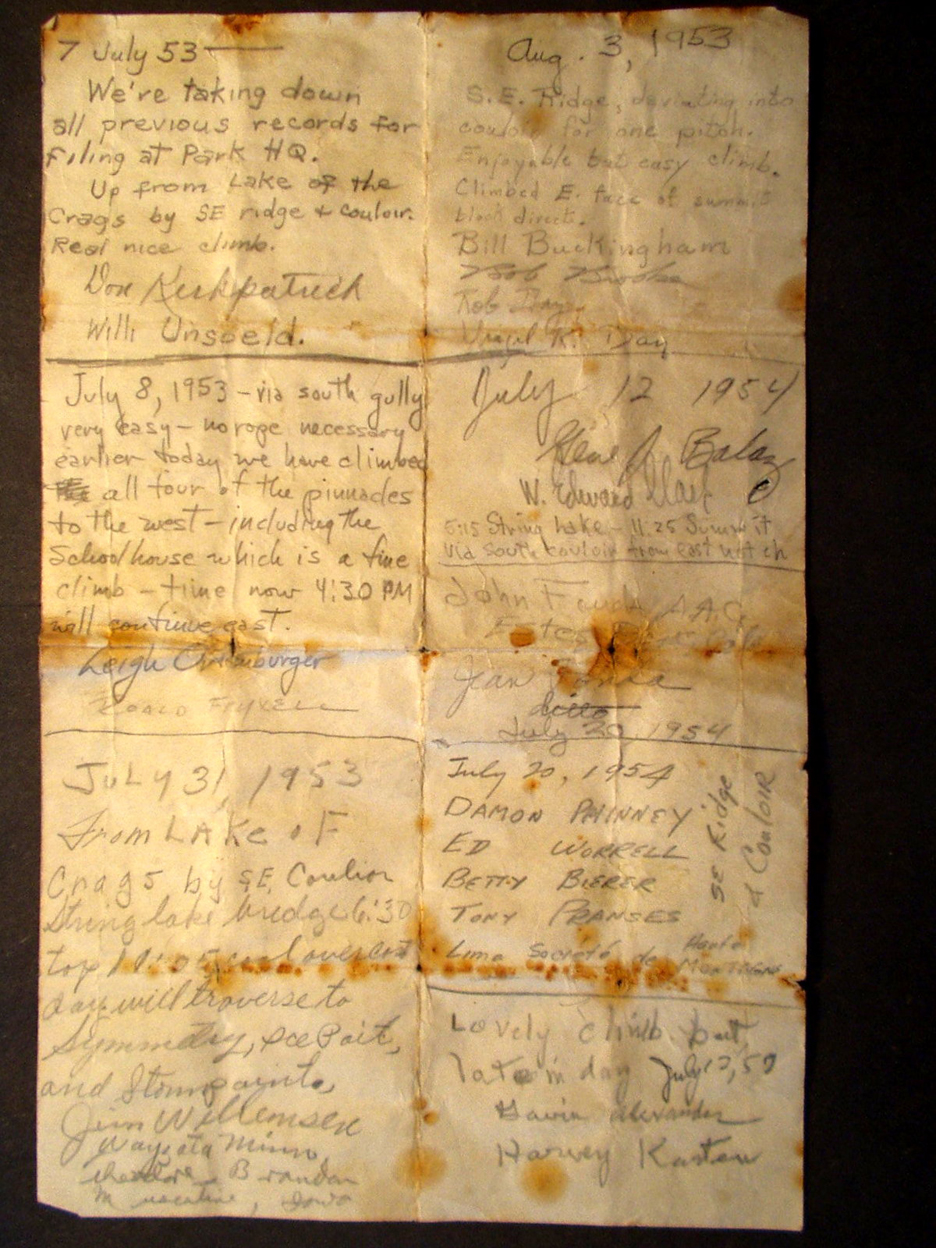 7 July 53
We're taking down
all previous records for
filing at Park HQ.
Up from Lake of the
Crags by SE ridge + couloir.
Real nice climb.
Don Kirkpatrick
Willi Unsoeld.
July 8, 1953 - via south gully
very easy - no rope necessary
earlier today we have climbed
all four of the pinnacles
to the west - including the
Schoolhouse which is a fine
climb - time now 4:30 PM
will continue east.
Leigh Ortenburger
Roald Fryxell
JULY 31, 1953
From LAKe oF
Crags by SE,
String lake bridge 6:30
top overcast
day, will traverse to
Symmetry, Ice Point,
and Storm point,
Jim Willemsen
Wayzata Minn,
Theodore Brandon
Muscatine, Iowa
Aug. 3, 1953
S.E. Ridge, deviating into
couloir for one pitch.
Enjoyable but easy climb.
Climbed E. face of summit
block direct.
Bill Buckingham
Rob Day
Virgil R. Day
July 12 1954
Gene J Balaz
W. Edward Clark
5:15 String Lake - 11:25 Summit
Via South couloir from east notch
John A.A.C.
Estes
Jean
ditto
July 20, 1954
July 20, 1954
DAMON PHINNEY
ED WORRELL
BETTY BIERER
TONY PRANSES
Société de Haute
Montagne
SE Ridge
& Couloir
Lovely climb but
late in day July 13, 57
Gavin Alexander
Harvey Karten